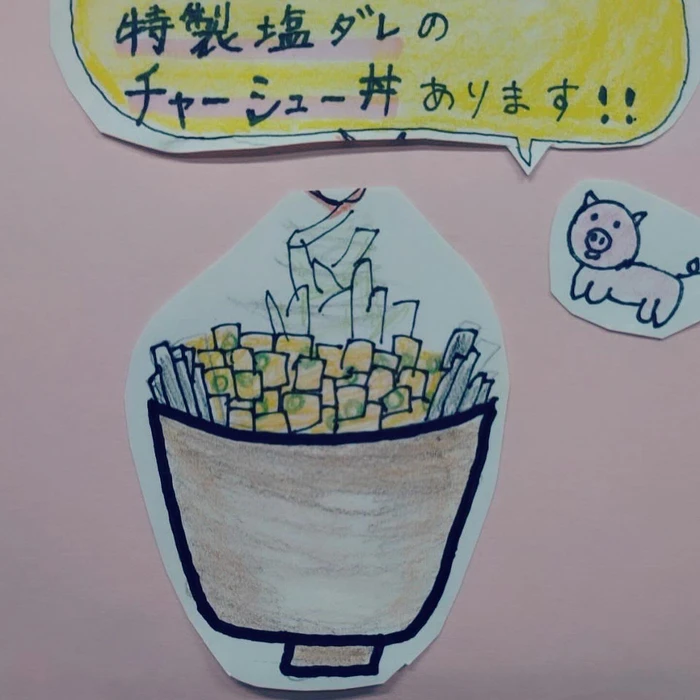 特製塩ダレの
チャーシュー丼あります!!